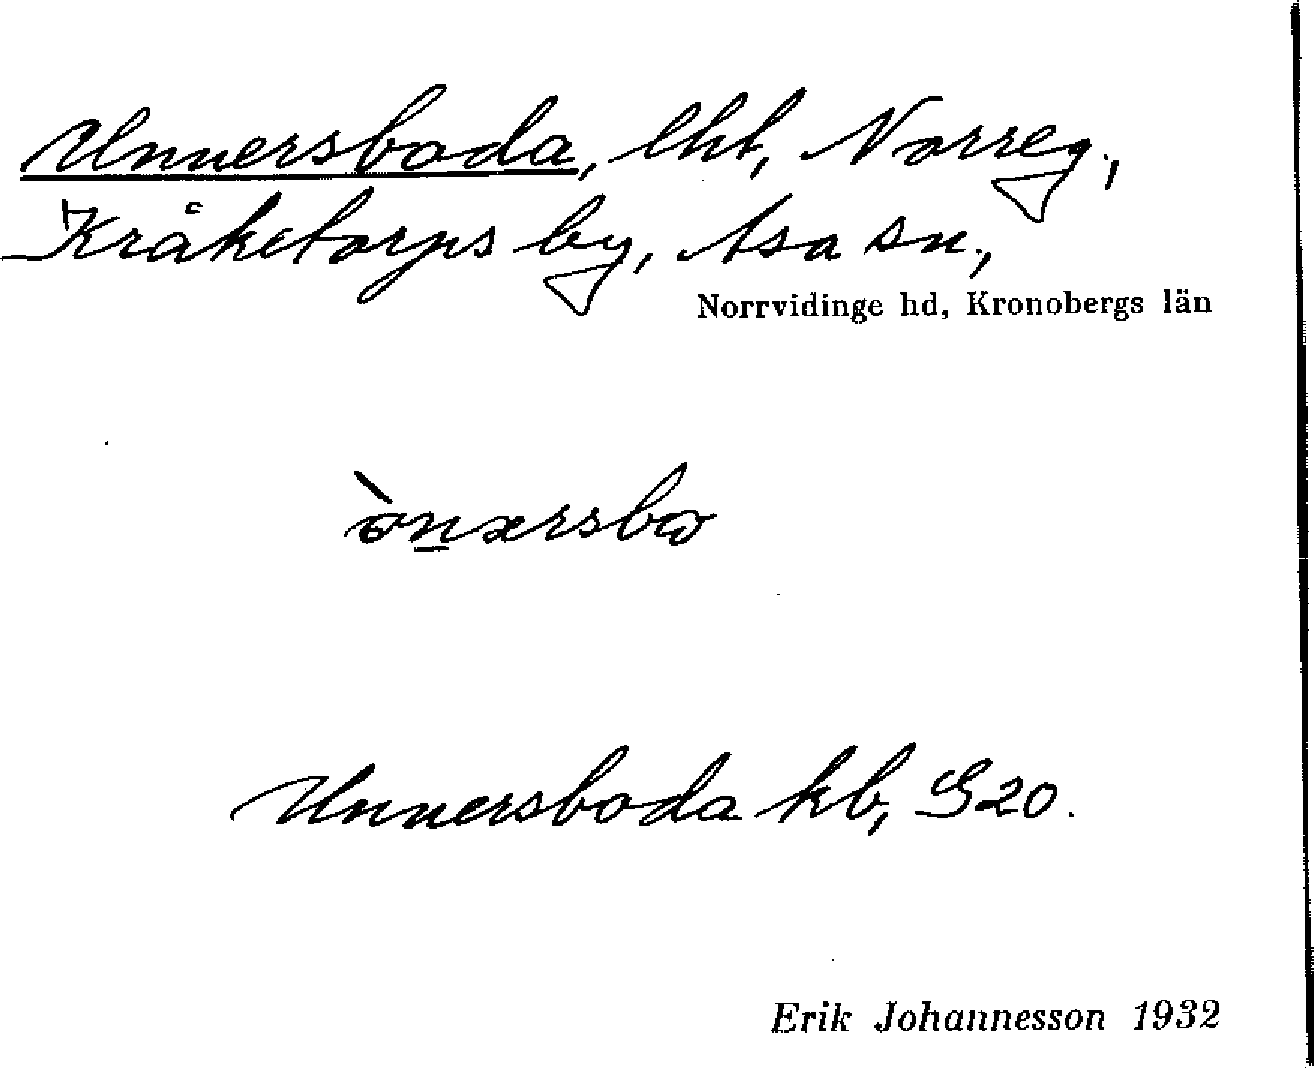 Unnersboda, lht, Norreg.,
Kråketorps by, Asa sn,
Norrvidinge hd, Kronobergs län
Unnersboda kb, G20.
Erik Johannesson 1932